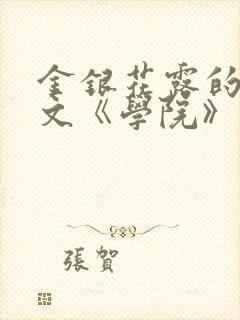 金銀花露的
文《學院》
張賀